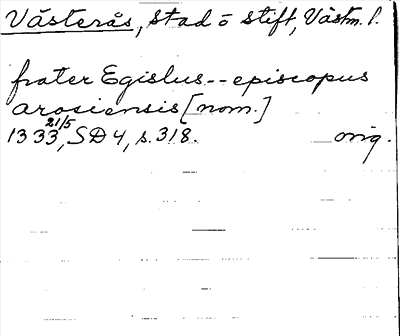 Västerås, stad o stift, Västm. l.
frater Egislus -- episcopus
arosiensis [nom.]
1333 21/5, SD 4, s. 318. orig.